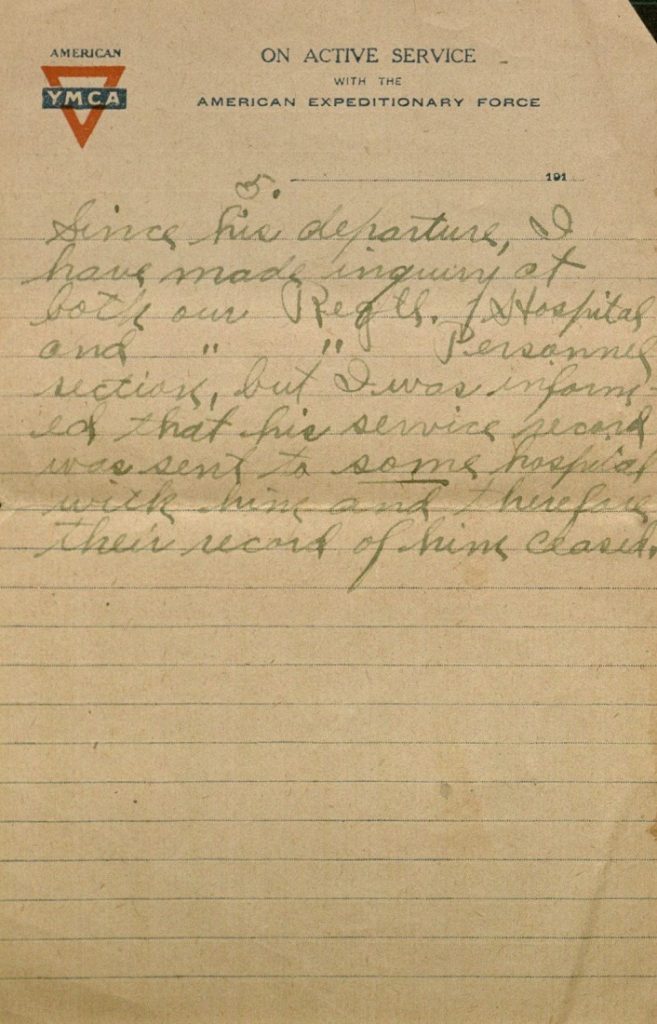 AMERICAN
YMCA
ON ACTIVE SERVICE
WITH THE
AMERICAN EXPEDITIONARY FORCE
191
5.
Since his departure, I
have made inquiry at
both our Reg'tl. Hospital
and " " Personnel
section, but I was inform-
ed that his service record
was sent to some hospital
with him and therefore
their record of him ceased.